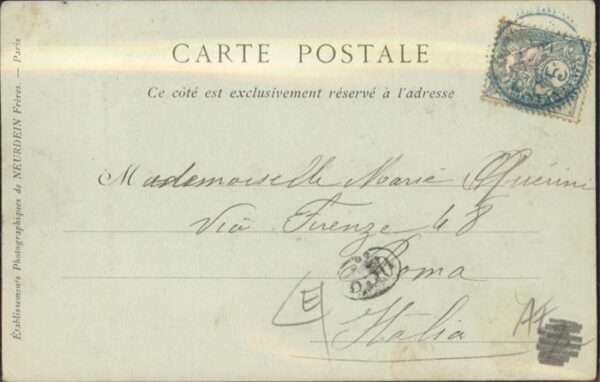 CARTE POSTALE
Ce côté est exclusivement réservé à l'adresse
Mademoiselle Marie Guérini
Via Firenze 48
Roma
Italia
E
Établissements Photographiques de NEURDEIN Frères. — Paris